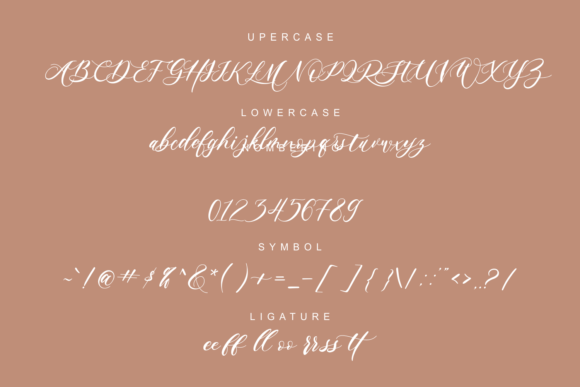 UPERCASE
ABCDEFGHIJKLMNOPQRSTUVWXYZ
LOWERCASE
abcdefghijklmnopqrstuvwxyz
0123456789
SYMBOL
~`!@#$%^&*()+=_-[ ]{}\|:;'"<>,.?/
LIGATURE
ee ff ll oo rr ss tt